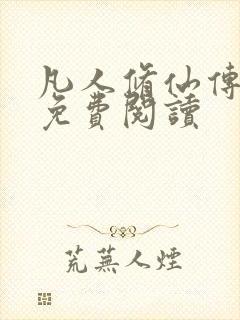 凡人脩仙傳
免費閱讀
荒蕪人煙